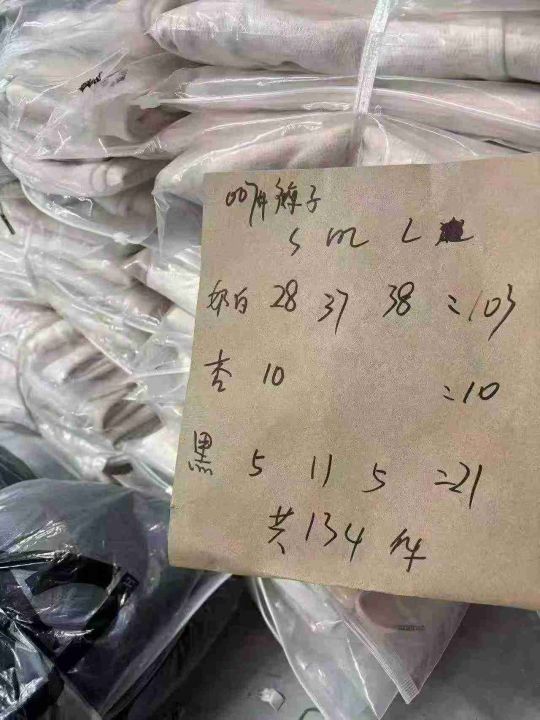 007件裤子
S M L
奶白 28 37 38 =103
杏 10 =10
黑 5 11 5 =21
共134件